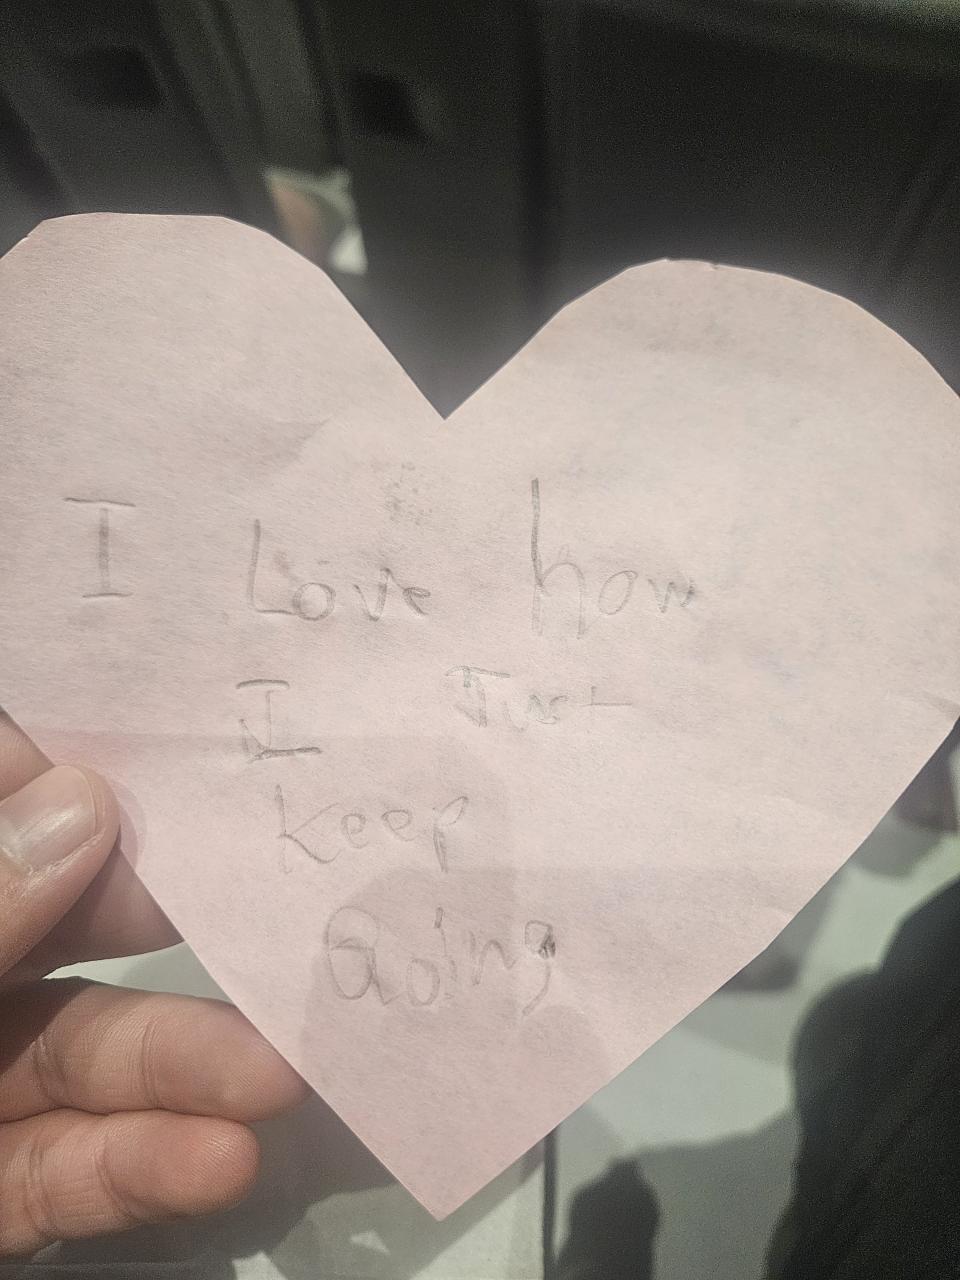 I Love how
I Just
Keep
Going